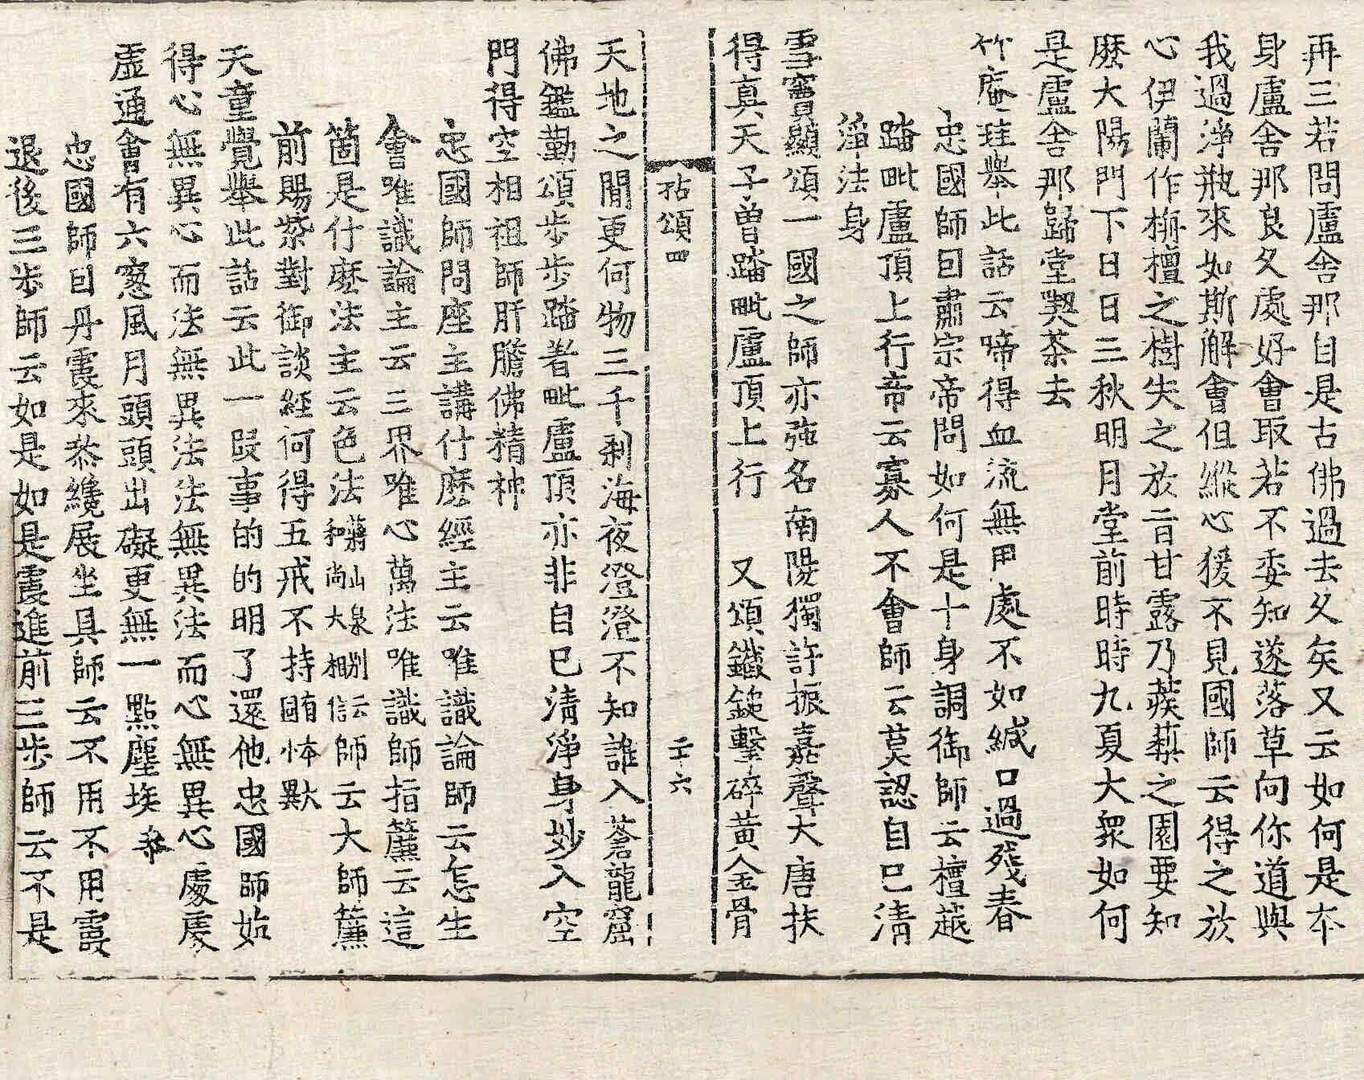 再三若問盧舍那自是古佛過去久矣又云如何是本
身盧舍那良久處好會取若不委知遂落草向你道與
我過淨瓶來如斯解會但縱心猨不見國師云得之於
心伊蘭作栴檀之樹失之於旨甘露乃蒺䔧之園要知
麽大陽門下日日三秋明月堂前時時九夏大衆如何
是盧舍那歸堂喫茶去
竹庵珪舉此話云啼得血流無用處不如緘口過殘春
忠國師因肅宗帝問如何是十身調御師云檀越
踏毗盧頂上行帝云寡人不會師云莫認自己清
淨法身
雪竇顯頌一國之師亦強名南陽獨許振嘉聲大唐扶
得真天子曾踏毗盧頂上行　又頌鐵鎚擊碎黃金骨
拈頌四　二十六
天地之間更何物三千刹海夜澄澄不知誰入蒼龍窟
佛鑑勤頌步步踏著毗盧頂亦非自己清淨身妙入空
門得空相祖師肝膽佛精神
忠國師問座主講什麽經主云唯識論師云怎生
會唯識論主云三界唯心萬法唯識師指簾云這
箇是什麽法主云色法蔣山泉別云和尚大相信師云大師簾
前賜紫對御談經何得五戒不持
天童覺舉此話云此一段事的的明了還他忠國師始
得心無異心而法無異法法無異法而心無異心處處
虛通會有六窻風月頭頭出礙更無一點塵埃
忠國師因丹霞來叅纔展坐具師云不用不用霞
退後三步師云如是如是霞進前三步師云不是